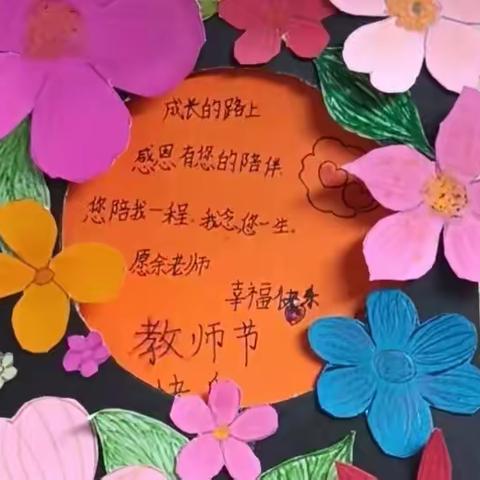 成长的路上
感恩有您的陪伴
您陪我一程,我念您一生。
愿余老师
幸福快乐
教师节
快